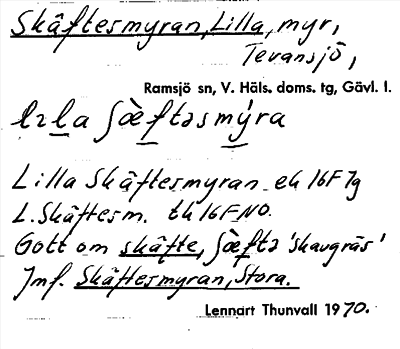 Skäftesmyran, Lilla, myr,
Tevansjö,
Ramsjö sn, V. Häls. doms. tg, Gävl. l.
lɪla ʃæftəsmýra
Lilla Skäftesmyran ek 16F 7g
L. Skäftesm. tk 16F NO.
Gott om skäfte, ʃæftə 'skavgräs'
Jmf. Skäftesmyran, Stora.
Lennart Thunvall 1970.